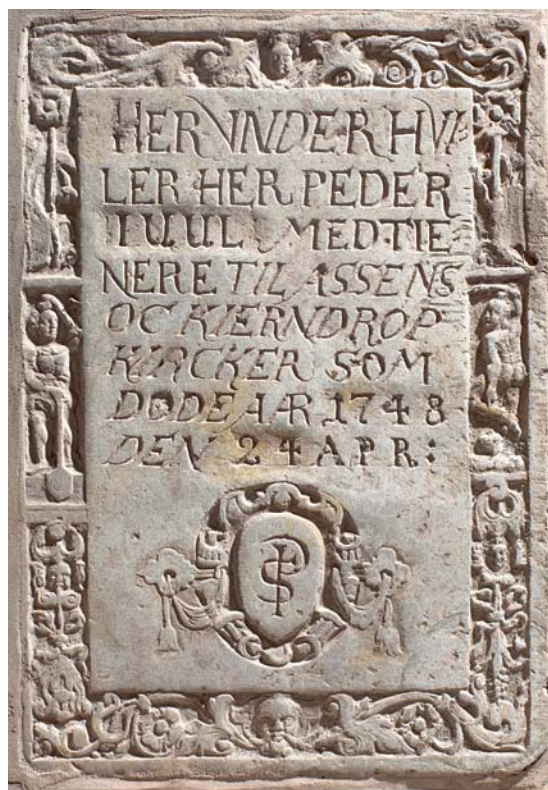 HER VNDER HVI=
LER HER PEDER
IUUL MEDTIE=
NERE TIL ASSENS
OC KIERNDROP
KIRCKER SOM
DØDE AAR 1748
DEN 24 APR:
PS